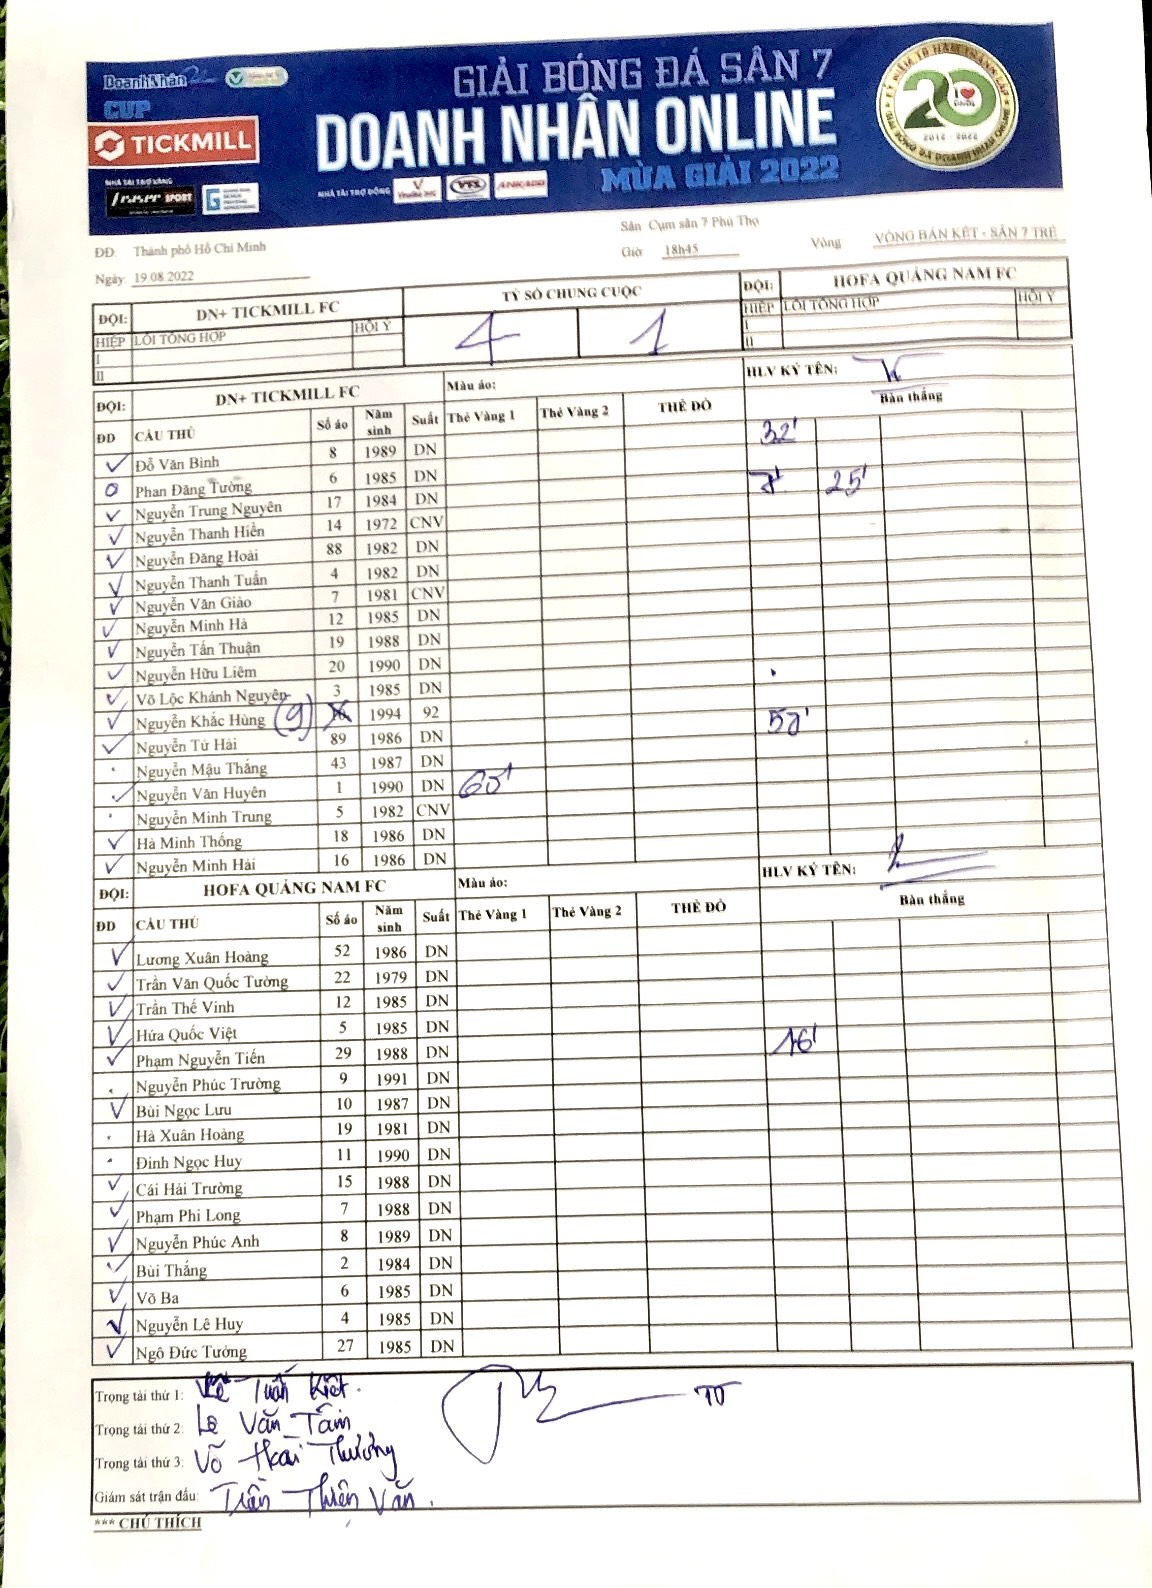 DoanhNhân
CUP
TICKMILL
NHÀ TÀI TRỢ VÀNG
SPORT
GIẢI BÓNG ĐÁ SÂN 7
DOANH NHÂN ONLINE
MÙA GIẢI 2022
NHÀ TÀI TRỢ ĐỒNG
20
2012 - 2022
ĐĐ: Thành phố Hồ Chí Minh Sân Cụm sân 7 Phú Thọ
Ngày 19.08.2022 Giờ 18h45 Vòng VÒNG BÁN KẾT - SÂN 7 TRẺ
ĐỘI: DN+ TICKMILL FC TỶ SỐ CHUNG CUỘC ĐỘI: HOFA QUẢNG NAM FC
HIỆP LỖI TỔNG HỢP HỘI Ý 4 1 HIỆP LỖI TỔNG HỢP HỘI Ý
I I
II II
ĐỘI: DN+ TICKMILL FC Màu áo: HLV KÝ TÊN:
ĐD CẦU THỦ Số áo Năm sinh Suất Thẻ Vàng 1 Thẻ Vàng 2 THẺ ĐỎ Bàn thắng
Đỗ Văn Bình 8 1989 DN 32'
Phan Đăng Tường 6 1985 DN
Nguyễn Trung Nguyên 17 1984 DN 25'
Nguyễn Thanh Hiền 14 1972 CNV
Nguyễn Đăng Hoài 88 1982 DN
Nguyễn Thanh Tuấn 4 1982 DN
Nguyễn Văn Giào 7 1981 CNV
Nguyễn Minh Hà 12 1985 DN
Nguyễn Tấn Thuận 19 1988 DN
Nguyễn Hữu Liêm 20 1990 DN
Võ Lộc Khánh Nguyên 3 1985 DN
Nguyễn Khắc Hùng (9) 1994 92
Nguyễn Tứ Hải 89 1986 DN
Nguyễn Mậu Thắng 43 1987 DN
Nguyễn Văn Huyên 1 1990 DN
Nguyễn Minh Trung 5 1982 CNV
Hà Minh Thống 18 1986 DN
Nguyễn Minh Hải 16 1986 DN
ĐỘI: HOFA QUẢNG NAM FC Màu áo: HLV KÝ TÊN:
ĐD CẦU THỦ Số áo Năm sinh Suất Thẻ Vàng 1 Thẻ Vàng 2 THẺ ĐỎ Bàn thắng
Lương Xuân Hoàng 52 1986 DN
Trần Văn Quốc Tường 22 1979 DN
Trần Thế Vinh 12 1985 DN
Hứa Quốc Việt 5 1985 DN
Phạm Nguyễn Tiến 29 1988 DN 16'
Nguyễn Phúc Trường 9 1991 DN
Bùi Ngọc Lưu 10 1987 DN
Hà Xuân Hoàng 19 1981 DN
Đinh Ngọc Huy 11 1990 DN
Cái Hải Trường 15 1988 DN
Phạm Phi Long 7 1988 DN
Nguyễn Phúc Anh 8 1989 DN
Bùi Thắng 2 1984 DN
Võ Ba 6 1985 DN
Nguyễn Lê Huy 4 1985 DN
Ngô Đức Tưởng 27 1985 DN
Trọng tài thứ 1: Tuấn Kiệt.
Trọng tài thứ 2: Lê Văn Tâm
Trọng tài thứ 3: Võ Hoài Thương
Giám sát trận đấu: Trần Thiện Văn.
*** CHÚ THÍCH